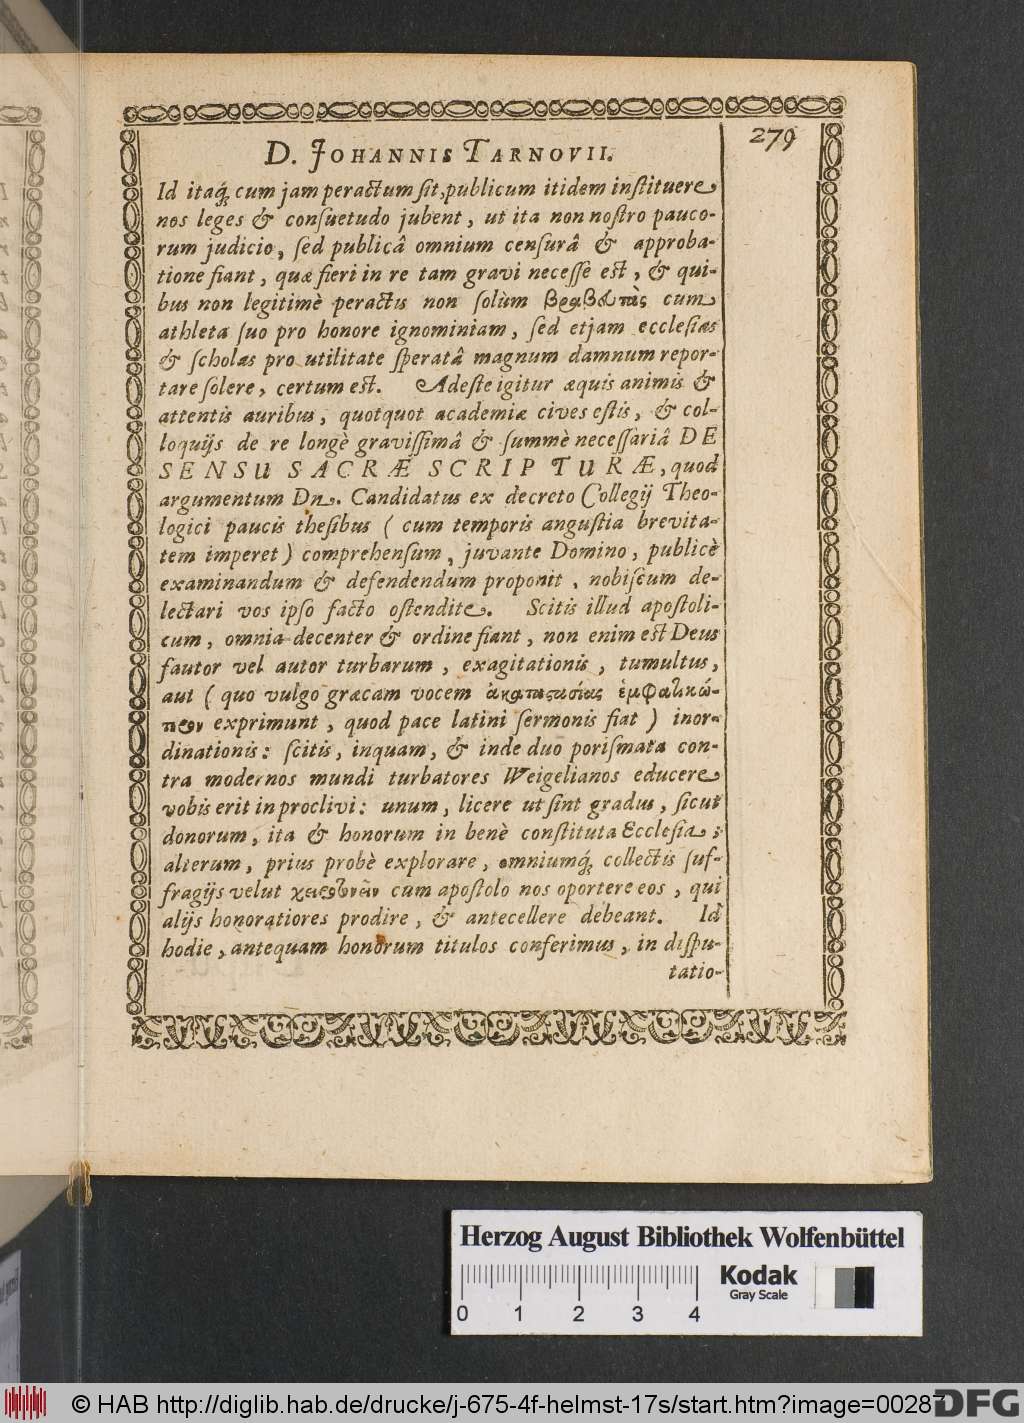 279
D. JOHANNIS TARNOVII.
Id itaq́; cum jam peractum sit, publicum itidem instituere
nos leges & consuetudo jubent, ut ita non nostro pauco-
rum judicio, sed publicâ omnium censurâ & approba-
tione fiant, quæ fieri in re tam gravi necesse est, & qui-
bus non legitimè peractis non solùm βραβευτὰς cum
athleta suo pro honore ignominiam, sed etjam ecclesias
& scholas pro utilitate speratâ magnum damnum repor-
tare solere, certum est. Adeste igitur æquis animis &
attentis auribus, quotquot academiæ cives estis, & col-
loquijs de re longè gravissimâ & summè necessariâ DE
SENSU SACRÆ SCRIPTURÆ, quod
argumentum Dn. Candidatus ex decreto Collegij Theo-
logici paucis thesibus (cum temporis angustia brevita-
tem imperet) comprehensum, juvante Domino, publicè
examinandum & defendendum proponit, nobiscum de-
lectari vos ipso facto ostendite. Scitis illud apostoli-
cum, omnia decenter & ordine fiant, non enim est Deus
fautor vel autor turbarum, exagitationis, tumultus,
aut (quo vulgo græcam vocem ἀκαταστασίας ἐμφατικώ-
τερον exprimunt, quod pace latini sermonis fiat) inor-
dinationis: scitis, inquam, & inde duo porismata con-
tra modernos mundi turbatores Weigelianos educere
vobis erit in proclivi: unum, licere ut sint gradus, sicut
donorum, ita & honorum in benè constituta Ecclesia;
alterum, prius probè explorare, omniumq́; collectis suf-
fragijs velut χειροτονεῖν cum apostolo nos oportere eos, qui
alijs honoratiores prodire, & antecellere debeant. Id
hodie, antequam honorum titulos conferimus, in dispu-
tatio-
Herzog August Bibliothek Wolfenbüttel
Kodak
Gray Scale
0 1 2 3 4
© HAB http://diglib.hab.de/drucke/j-675-4f-helmst-17s/start.htm?image=00287
DFG